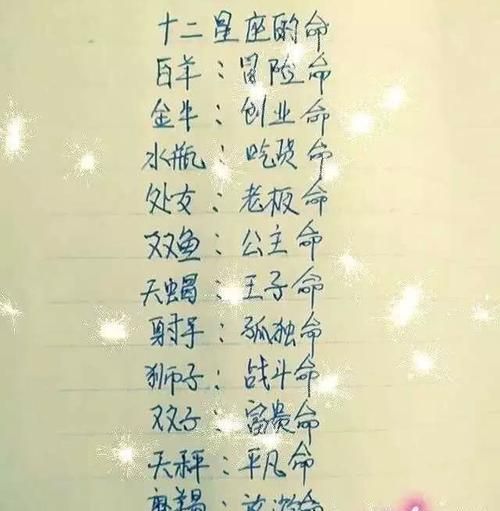 十二星座的命
百羊：冒险命
金牛：创业命
水瓶：吃货命
处女：老板命
双鱼：公主命
天蝎：王子命
射手：孤独命
狮子：战斗命
双子：富贵命
天秤：平凡命
摩羯：